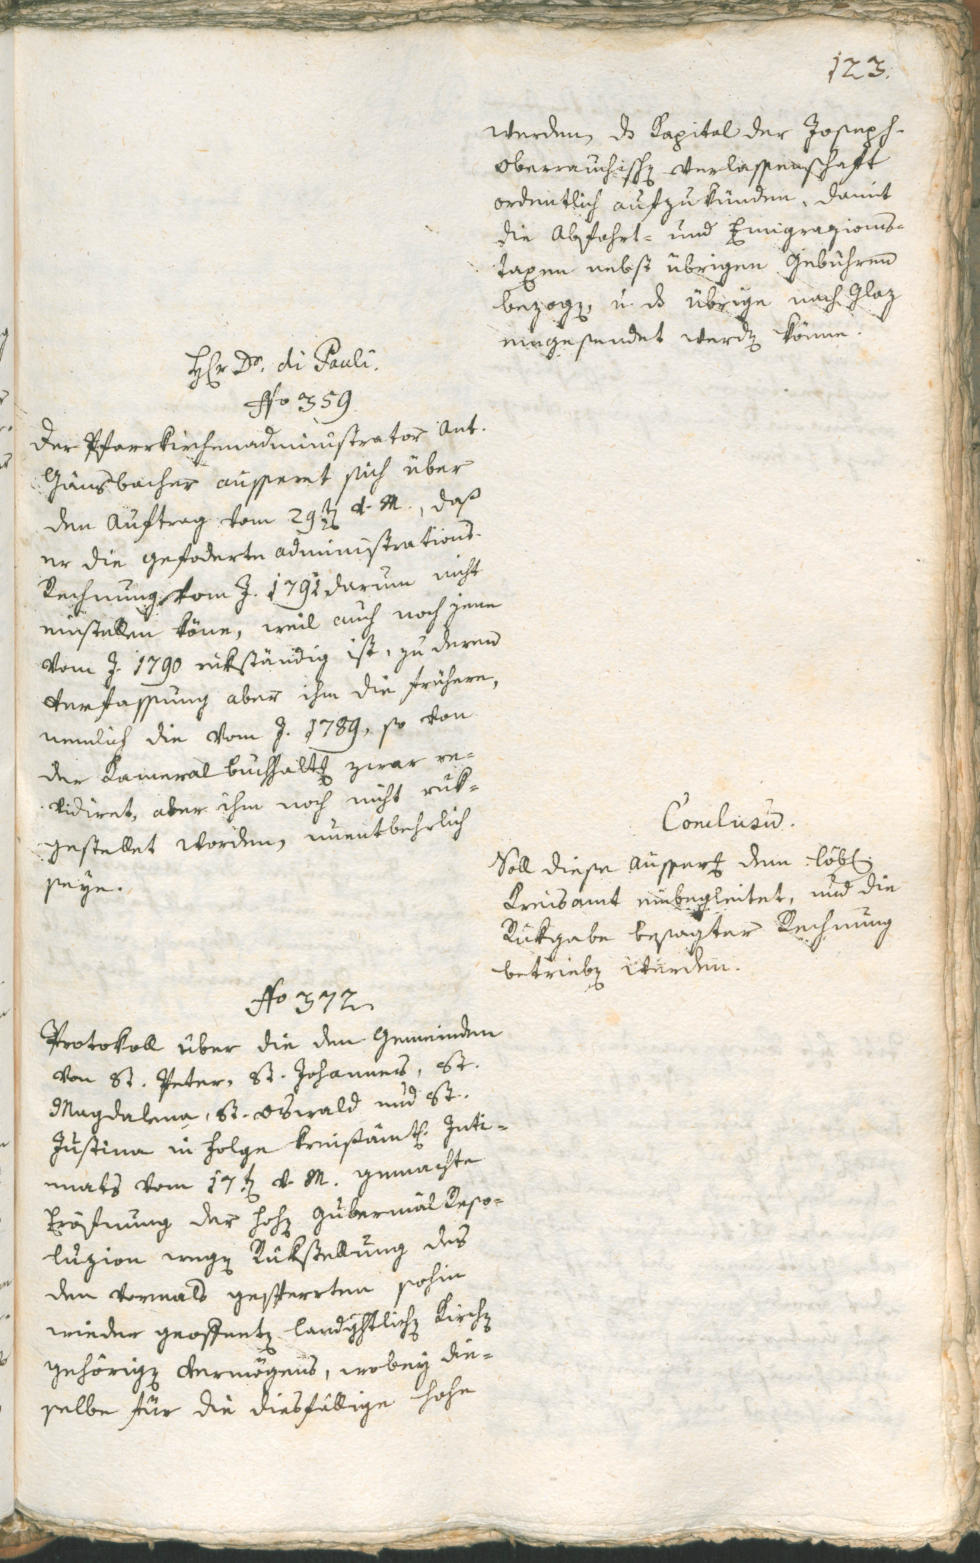 123.
werden, ds Kapital der Joseph-
Oberrauchisch Verlassenschaft
ordentlich aufzukünden, damit
die Abfahrt- und Emigrazions-
taxen nebst übrigen Gebühren
bezog, u. ds übrige nach Glaz
eingesendet werd könne.
H Dr. di Pauli.
No 359
Der Pfarrkirchenadministrator Ant.
Gänsbacher äusseret sich über
den Auftrag vom 29t v. M., daß
er die gefoderte Administrations-
Rechnung vom J. 1791 darum nicht
einstellen köne, weil auch noch jene
vom J. 1790 rükständig ist, zu deren
Verfassung aber ihm die frühere,
nemlich die vom J. 1789, so von
der Kameralbuchhalt zwar re-
vidiret, aber ihm noch nicht rük-
gestellet worden, unentbehrlich
seye.
Conclusũ.
Soll diese Äusser dem löbl
Kreisamt einbegleitet, und die
Rükgabe besagter Rechnung
betrieb werden.
No 372
Protokoll über die den Gemeinden
von St. Peter, St. Johannes, St.
Magdalena, St. Oswald und St.
Justina in Folge kreisämtl. Inti-
mats vom 17t v. M. gemachte
Eröfnung der hoh Gubernial Reso-
luzion weg Rükstellung des
den vormals gesperrten sohin
wieder geöffnet landghtlich Kirch
gehörig Vermögens, wobey die-
selbe für die diesfällige hohe